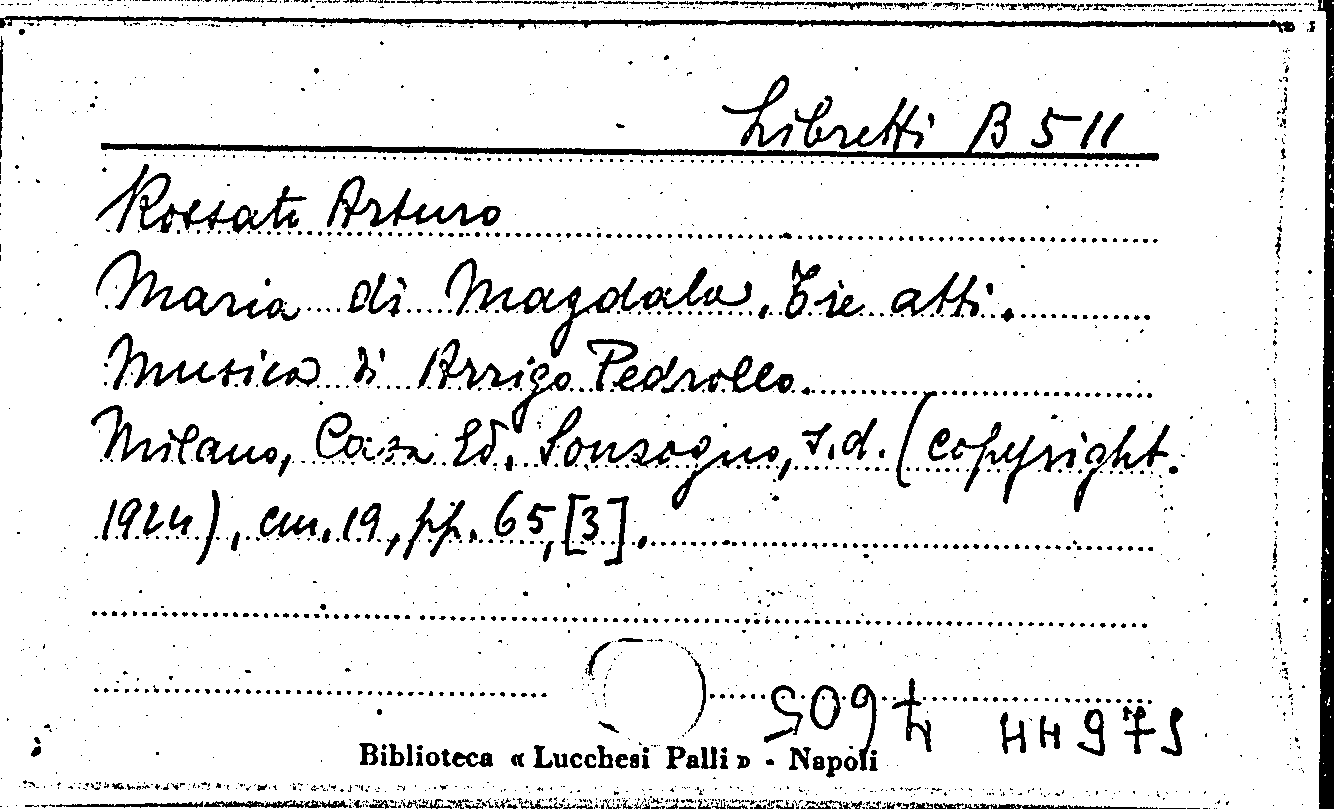 Libretti B 511
Rossato Arturo
Maria di Magdala. Tre atti.
Musica di Arrigo Pedrollo.
Milano, Casa Ed. Sonzogno, s.d. (copyright.
1924), cm. 19, pp. 65, [3].
Biblioteca « Lucchesi Palli » - Napoli